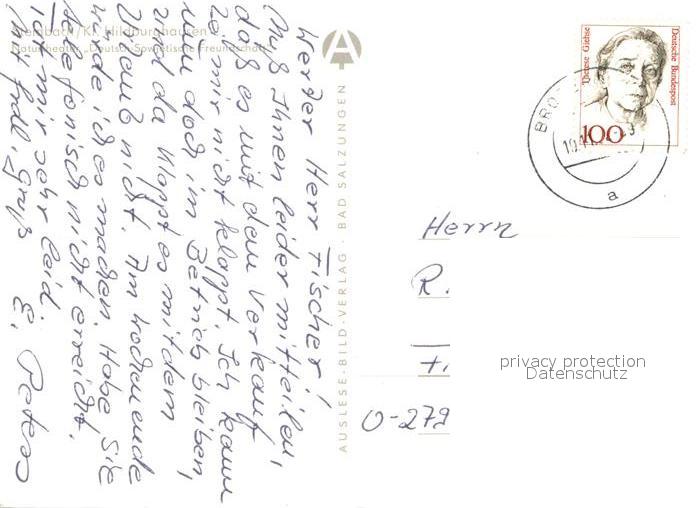 Steinbach/Kr. Hildburghausen
Naturtheater „Deutsch-Sowjetische Freundschaft“
Werter Herr Fischer!
Muß Ihnen leider mitteilen,
daß es mit dem Verkauf
bei mir nicht klappt. Ich kann
nun doch im Betrieb bleiben,
und da klappt es mit dem
nicht. Am Wochenende
würde ich es machen. Habe Sie
telefonisch nicht erreicht.
Tut mir sehr leid.
Mit frdl. Gruß E. Peters
AUSLESE-BILD-VERLAG · BAD SALZUNGEN
Therese Giehse
Deutsche Bundespost
100
BRO
a
Herrn
R.
F.
O-279
privacy protection
Datenschutz